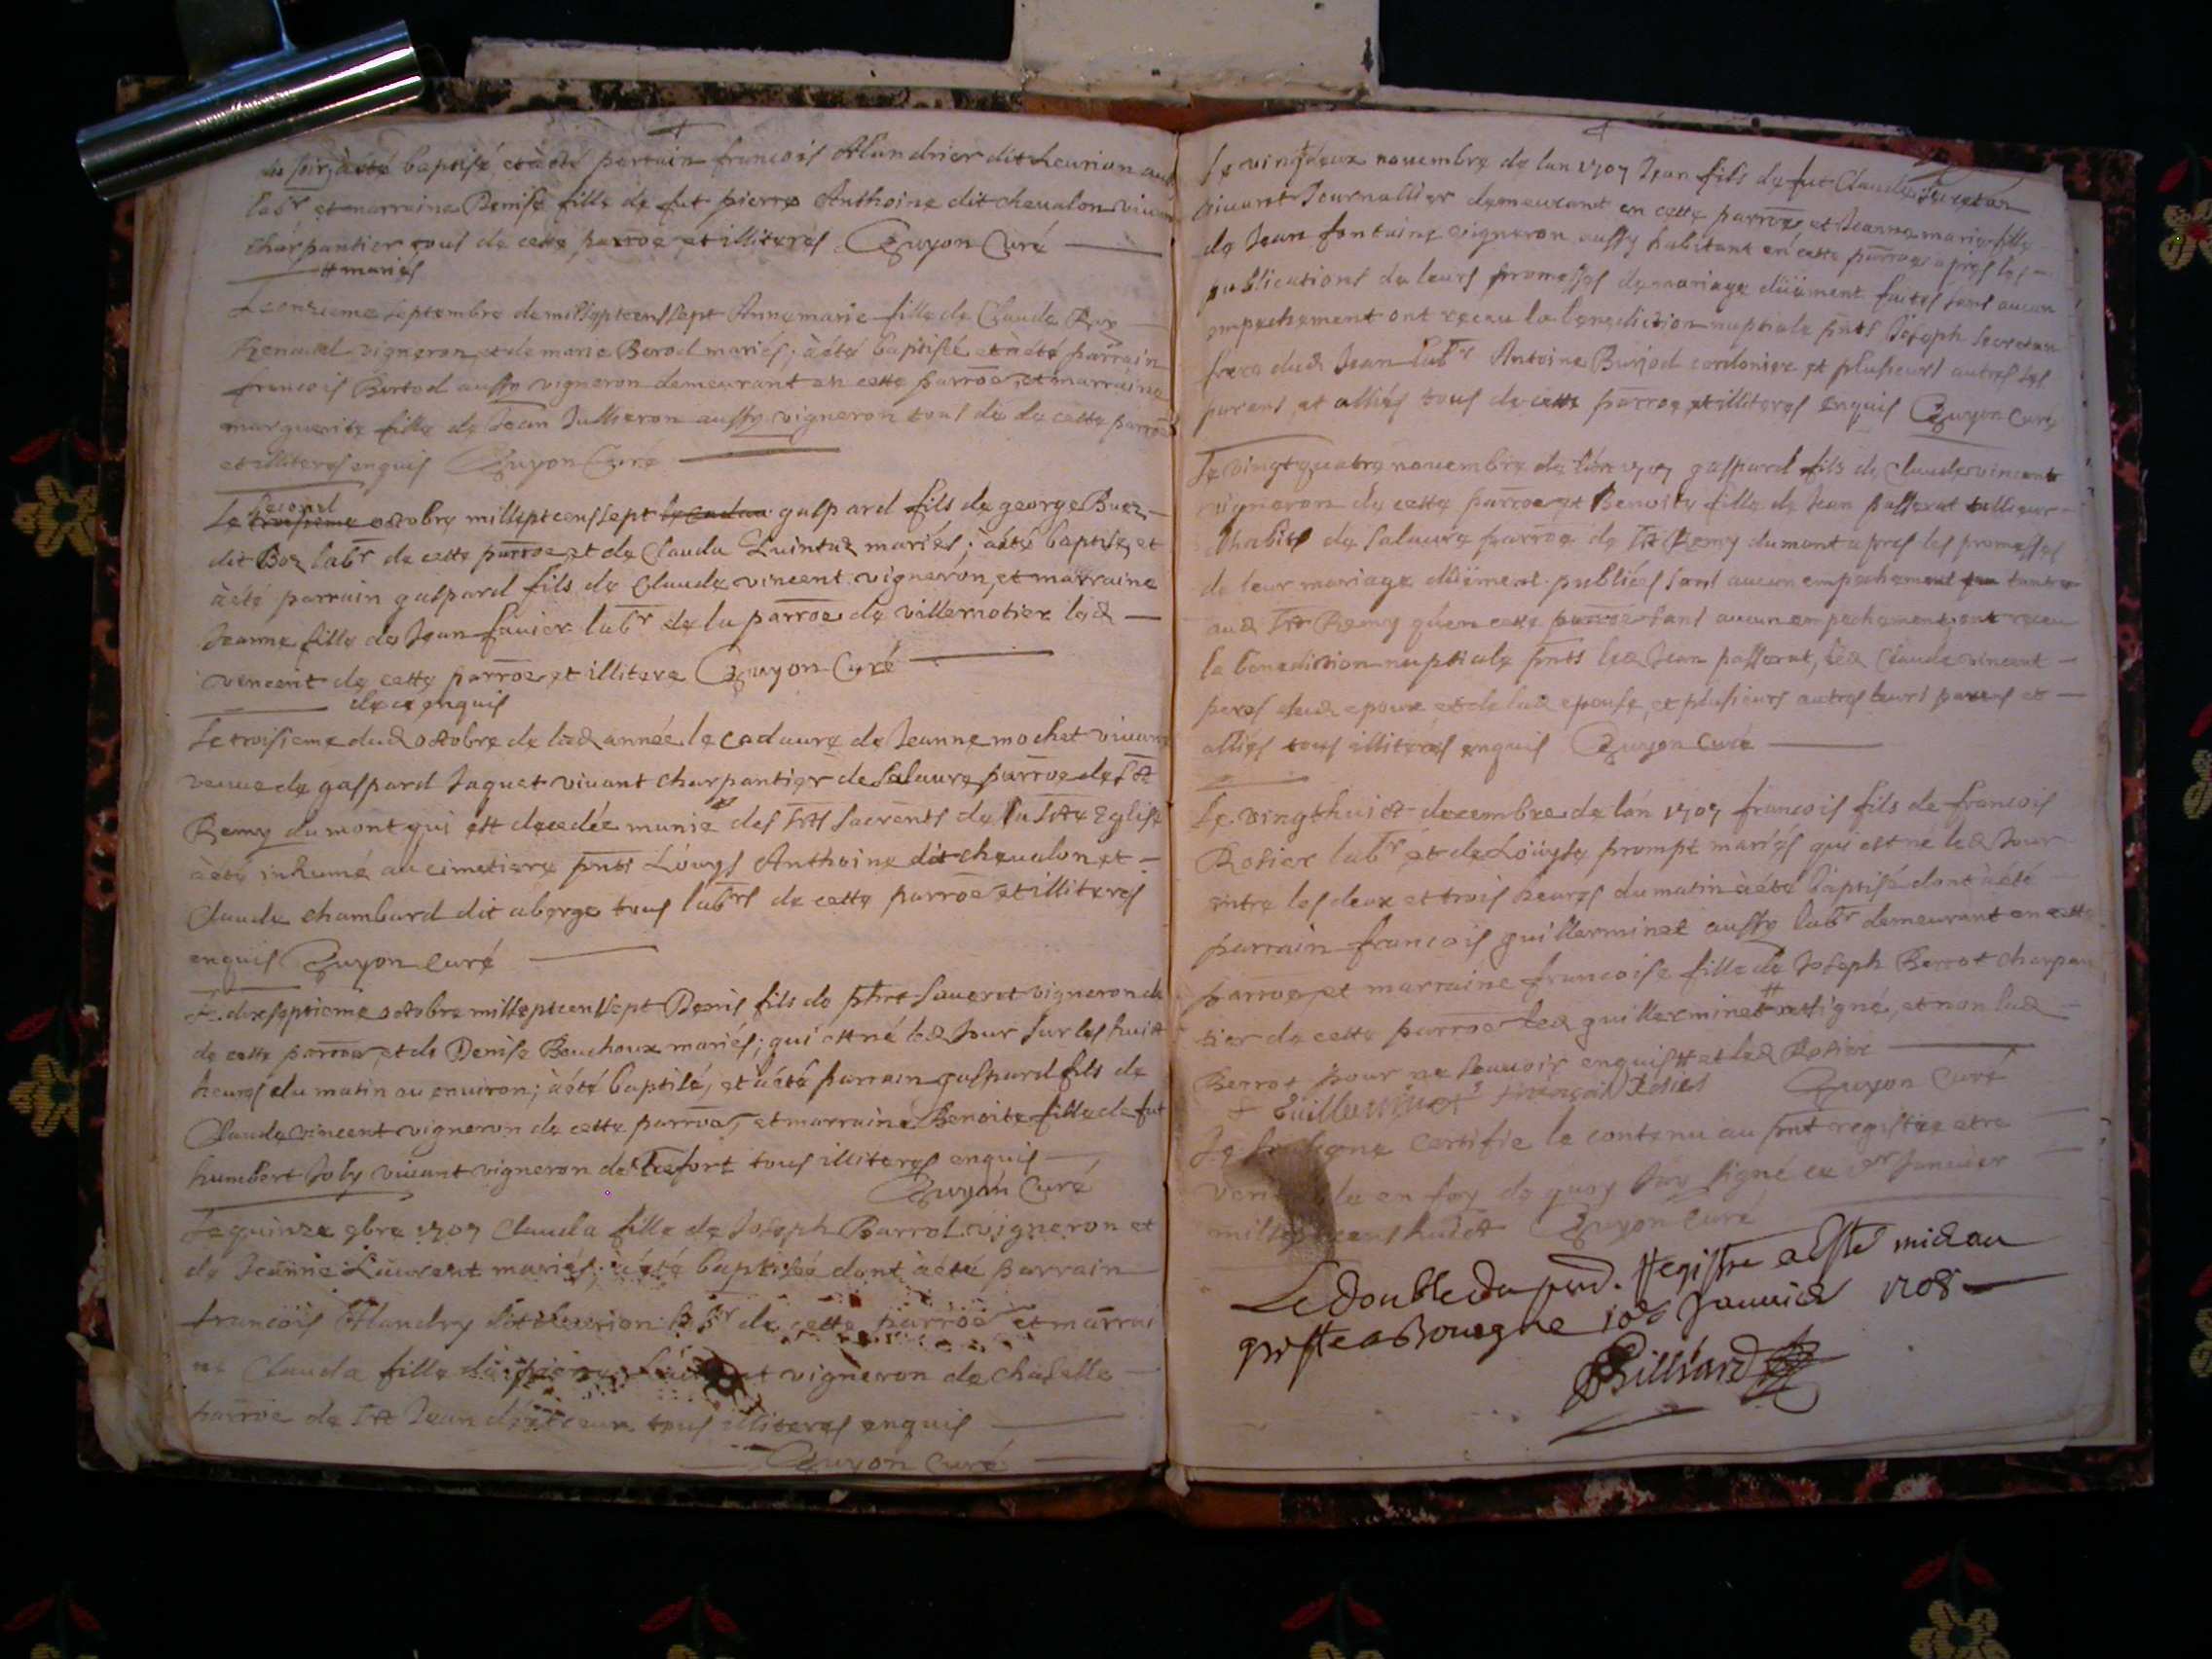 du soir; à été baptisé, et à été parrain francois Alandrier dit heurion aussy
labr et marraine Denise fille de fut pierre Anthoine dit cheualon viuant
charpantier tous de cette parroe et illiteres Guyon Curé
# mariés
Le onzieme septembre de mil sept cens sept Anne marie fille de Claude
Renaud vigneron, et de marie Berod mariés; à été baptisée et à été parrain
francois Bertod aussy vigneron demeurant en cette parroe, et marraine
marguerite fille de Jean Jullieron aussy vigneron tous de de cette parroe
et illiteres enquis Guyon Curé
second
Le troisieme octobre mil sept cens sept le cadau gaspard fils de george Buez
dit Boz labr de cette parroe et de Clauda Quintad mariés; à été baptisé, et
à été parrain gaspard fils de Claude vincent vigneron, et marraine
Jeanne fille de Jean fauier labr de la parroe de villemotier led
vincent de cette parroe et illitere Guyon Curé
de ce enquis
Le troisieme dud octobre de lad année le cadaure de Jeanne mochet viuant
veuue de gaspard Jaquet viuant charpantier de Salaure parroe de St
Remy du mont qui est decedée munie des Sts Sacrents de la Ste Eglise
à été inhumé au cimetiere pnts Louys Anthoine dit cheualon et
Claude chambard dit aberge tous labrs de cette parroe et illiteres
enquis Guyon Curé
Le dix septieme octobre mil sept cens sept Denis fils de phrt Saueret vigneron de
de cette parroe, et de Denise Bouchoux mariés; qui est né led Jour sur les huict
heures du matin ou environ; à été baptisé, et à été parrain gaspard fils de
Claude vincent vigneron de cette parroe, et marraine Benoite fille de fut
humbert Joly viuant vigneron de trefort tous illiteres enquis
Guyon Curé
Le quinze 9bre 1707 Clauda fille de Joseph Barrol vigneron et
de Jeanne Laurent mariés; à été baptisée dont à été parrain
francois Alandry dit heurion labr de cette parroe et marrai
ne Clauda fille de pierre Laurent vigneron de chaselle
parroe de St Jean tous illiteres enquis
Guyon Curé
Le vingt deux nouembre de lan 1707 Jean fils de fut Claude Secretan
viuant Journallier demeurant en cette parroe, et Jeanne marie fille
de Jean fontaine vigneron aussy habitant en cette parroe apres les
publications de leurs promesses de mariage düement faites sans aucun
empechement ont receu la benediction nuptiale pnts Joseph Secretan
frere dud Jean labr Antoine Burjod cordonier et plusieurs autres ses
parens et alliés tous de cette parroe et illiteres enquis Guyon Curé
Le vingt quatre nouembre de lan 1707 gaspard fils de Claude vincent
vigneron de cette parroe et Benoite fille de Jean passerat tallieur
habits de Salaure parroe de St Remy du mont apres les promesses
de leur mariage düement publiées sans aucun empechement tant
aud St Remy qu'en cette parroe sans aucun empechement, ont receu
la benediction nuptiale pnts led Jean passerat, led Claude vincent
peres dud epoux et de lad epouse, et plusieurs autres leurs parens et
alliés tous illiteres enquis Guyon Curé
Le vingt huict decembre de lan 1707 francois fils de francois
Rosier labr et de Loüyse prompt mariés qui est né led Jour
entre les deux et trois heures du matin à été baptisé dont à été
parrain francois guillerminet aussy labr demeurant en cette
parroe, et marraine francoise fille de Joseph Berrot charpan
tier de cette parroe led guillerminet # at signé, et non lad
Berrot pour ne scauoir enquis # et led Rosier
f Guilleminet françois Rosier Guyon Curé
Je soubsigne certifie le contenu au pnt registre etre
en foy de quoy Jay signé ce Januier
huict Guyon Curé
Le double du pnt. Registre a esté mis au
greffe a Bourg ce Januier 1708
Billiard